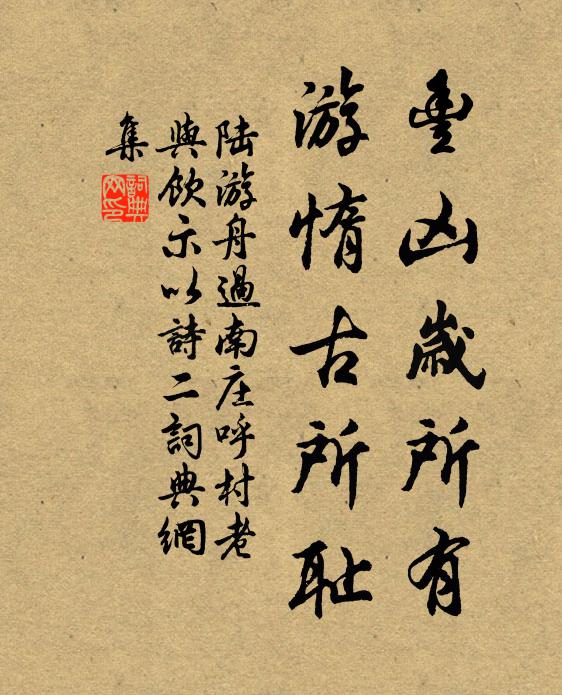 豊凶歳所有
游惰古所耻
陆游舟過南庄呼村老
與飲示以詩二詞典網
集
詞典
网印